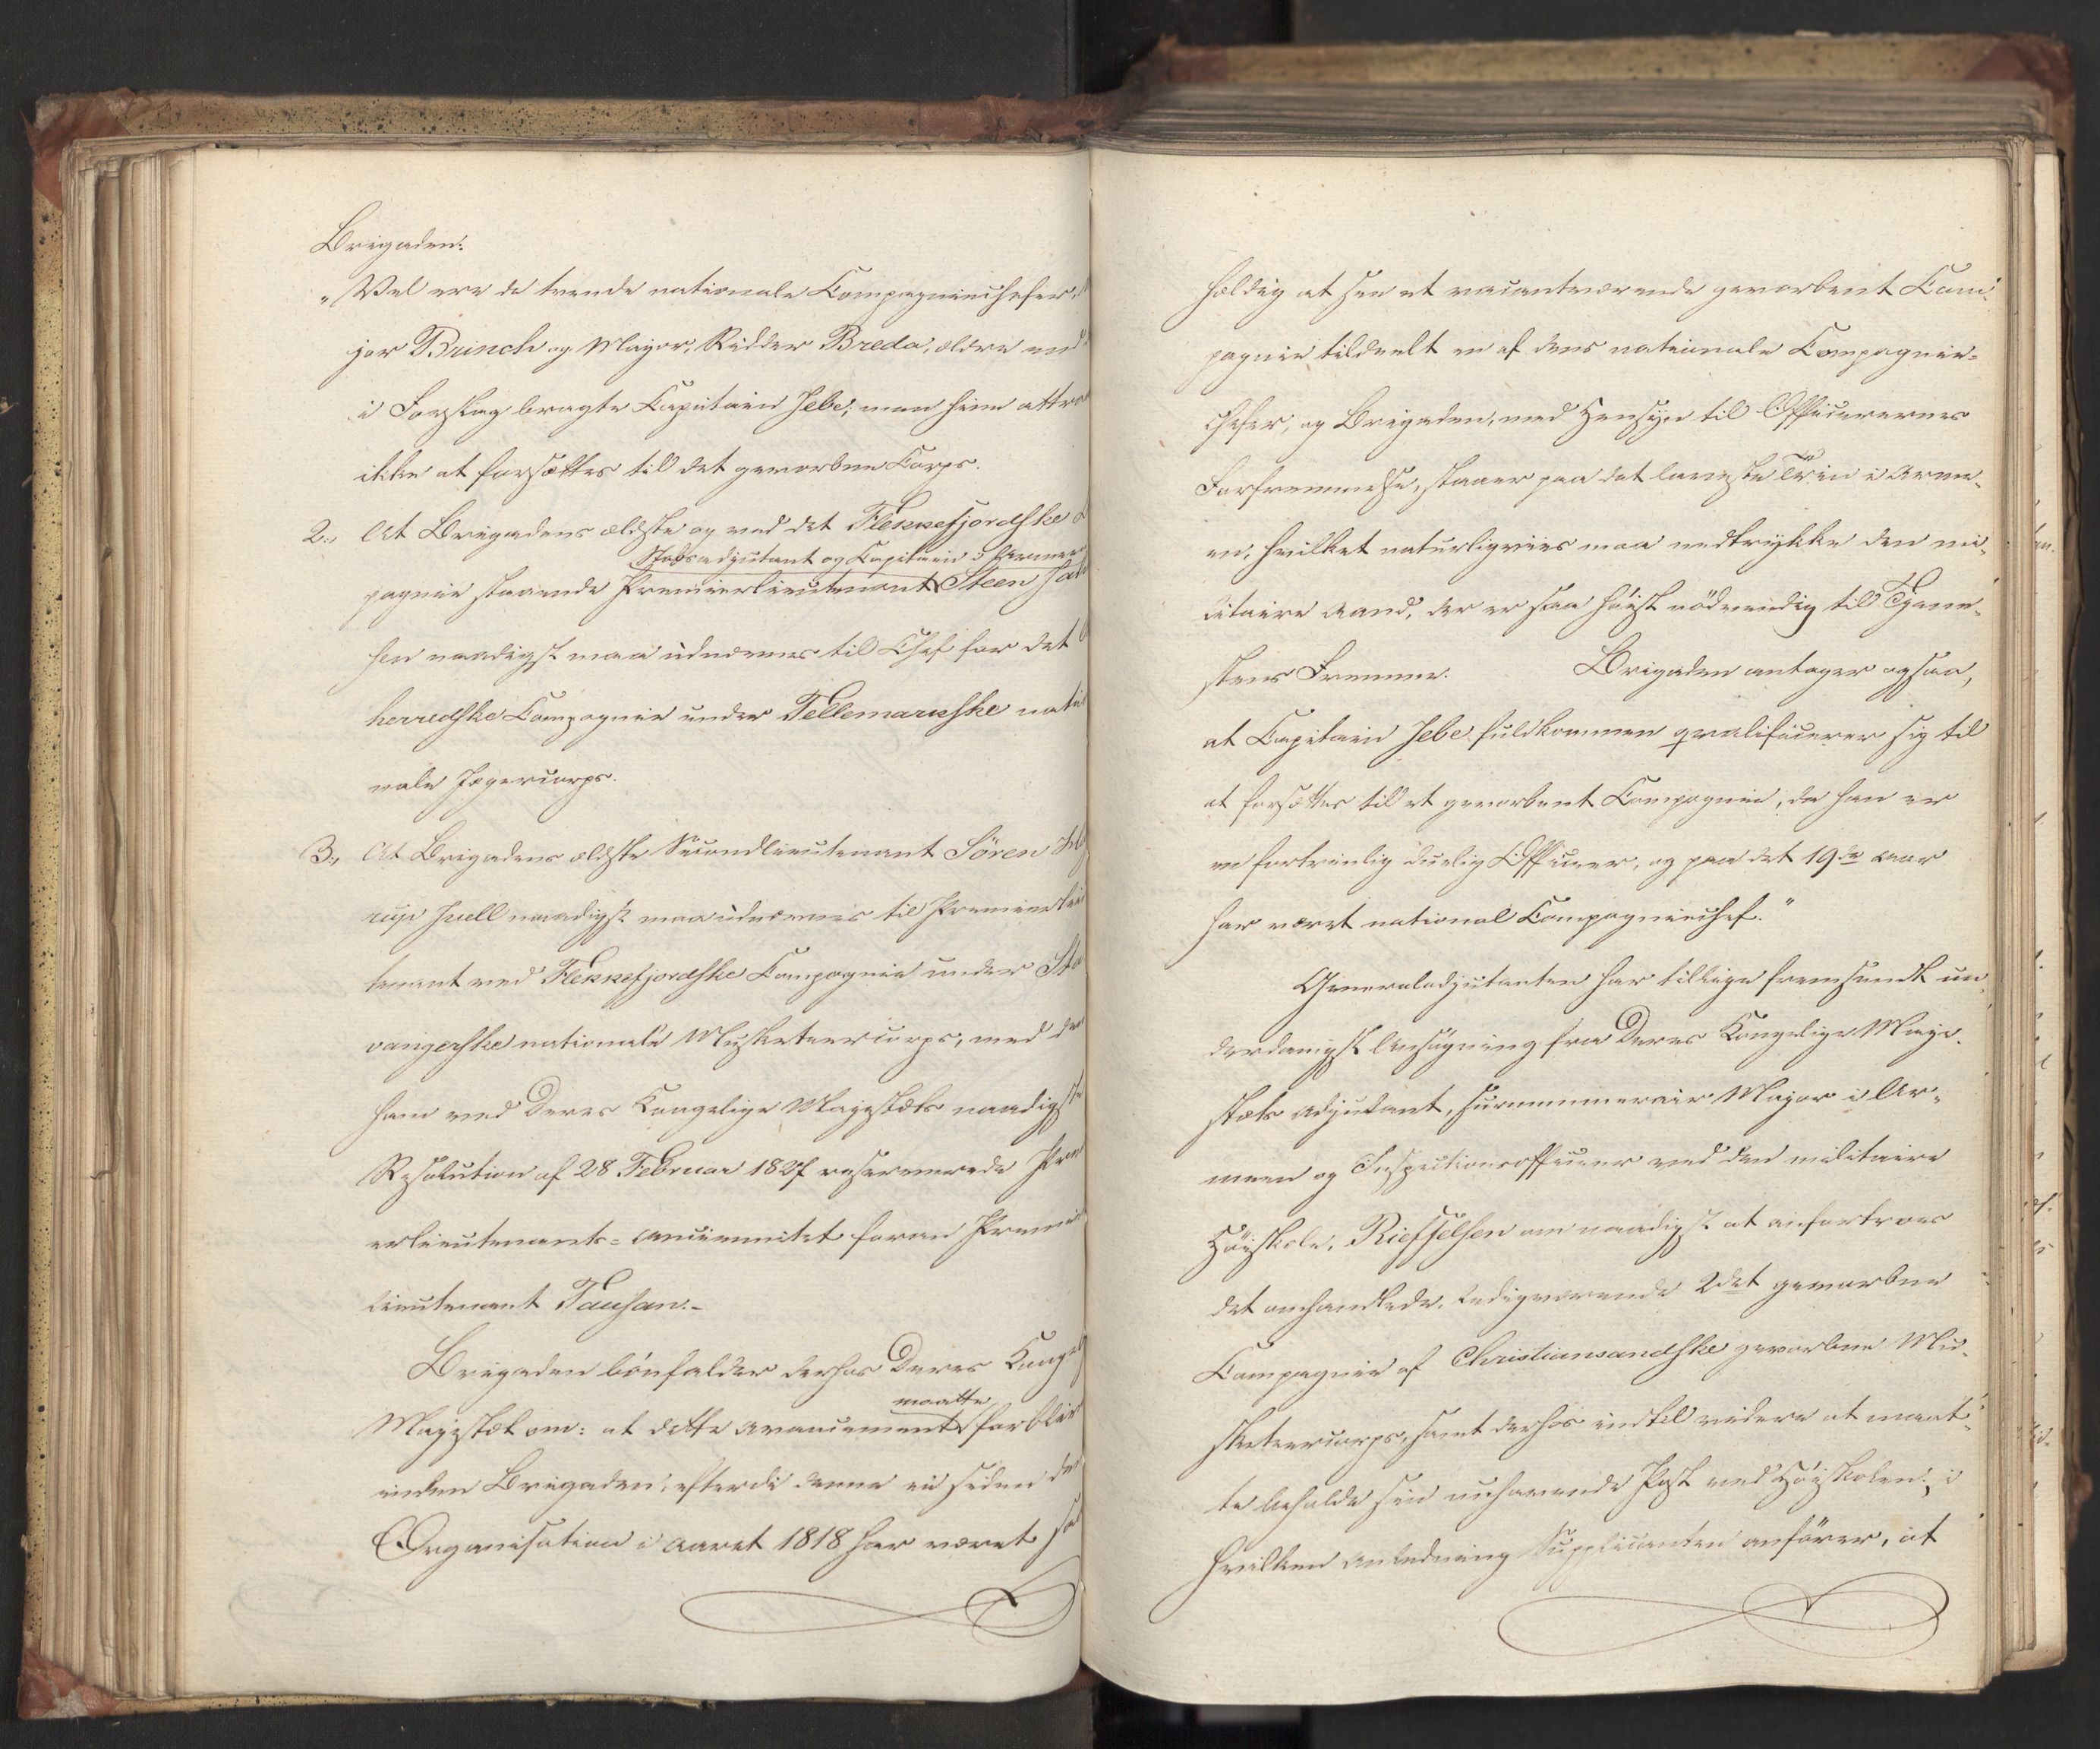 Brigaden:
"Vel ere de trende nationale Compagniechefer,
jor Brinch og Major, Ridder Breda, ældre end
i Forslag bragte Capitain Jebe; men hine attraa
ikke at forsættes til det gevorbne Corps.
2., At Brigadens ældste og ved det Flekkefjordske
Stabsadjutant og Capitain i Armeen
pagnie staaende Premierlieutenant Steen
sen naadigst maa udnævnes til Chef for det
herredske Compagnie under Tellemarkske natio
nale Jægercorps.
3., At Brigadens ældste Secondlieutenant Sören
rup Juell naadigst maa udnævnes til Premierlieu
tenant ved Flekkefjordske Compagnie under Sta
vangerske nationale Musketeercorps, med den
ham ved Deres Kongelige Majestæts naadigste
Resolution af 28 Februar 1827 reserverede Premi
erlieutenants-ancienitet foran Premier
lieutenant Tausan.-
Brigaden bönfalder derhos Deres Kongel
maatte
Majestæt om: at dette avancement forblive
inden Brigaden, efterdi denne ei siden dens
Organisation i aaret 1818 har været saa
heldig at see et vacantværende gevorbent Com-
pagnie tildeelt en af dens nationale Compagnie-
chefer, og Brigaden, med Hensyn til Officerernes
Forfremmelse, staaer paa det laveste Trin i Arme-
en, hvilket naturligviis maa nedtrykke den mi-
litaire Aand, der er saa höist nödvendig til Tjene-
stens Fremme. Brigaden antager ogsaa,
at Capitain Jebe fuldkommen qvalificerer sig til
at forsættes til et gevorbent Compagnie, da han er
en fortrinlig duelig Officeer, og paa det 19de aar
har været national Compagniechef."
Generaladjutanten har tillige fremsendt un-
derdanigst Ansögning fra Deres Kongelige Maje-
stæts Adjutant, surnummerair Major i Ar-
meen og Inspectionsofficeer ved den militaire
Höiskole, Rieffelsen om naadigst at anfortroes
det omhandlede, ledigværende 2det gevorbne
Compagnie af Christiansandske gevorbne Mu-
sketeercorps, samt derhos indtil videre at maat-
te beholde sin nuhavende Post ved Höiskolen; i
hvilken Anledning Supplicanten anförer, at